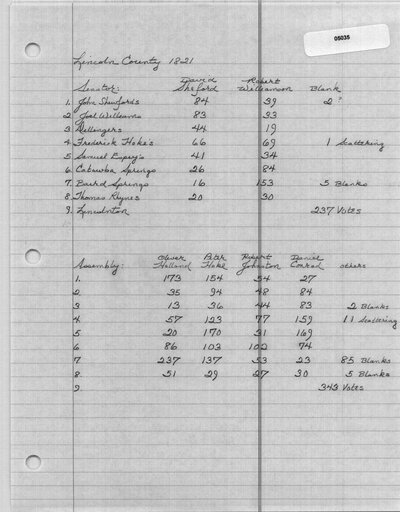 05035
Lincoln County 1821
Senator: David Sheford Robert Williamson Blank
1. John Shuford's 84 39 2?
2 Joel Williams 83 33
3 Dellingers 44 19
4 Frederick Hoke's 66 69 1 Scattering
5 Samuel Espey's 41 34
6 Catawba Springs 26 84
7. Buckd Springs 16 153 5 Blanks
8 Thomas Rhynes 20 30
9. Lincolnton 237 Votes
Assembly: Oliver Holland Peter Hoke Robert Johnston Daniel Conrad others
1. 173 154 54 27
2. 35 94 48 84
3 13 36 44 83 2 Blanks
4 57 123 77 159 11 Scattering
5 20 170 31 169
6 86 103 102 74
7 237 137 53 23 85 Blanks
8. 51 29 27 30 5 Blanks
9 343 Votes